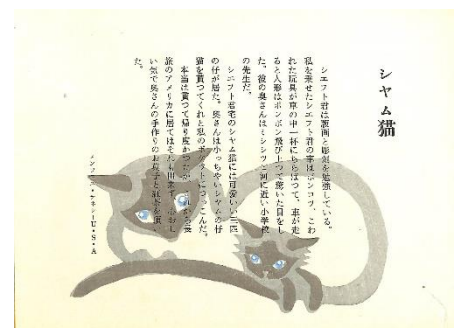 シヤム猫
シエフト君は版画と彫刻を勉強している。
私を乗せたシエフト君の車はポンコツ、こわ
れた玩具が車の中一杯にちらばつて、車が走
ると人形はポンポン飛び上つて驚いた目をし
た。彼の奥さんはミシシツピ河に近い小学校
の先生だ。
シエフト君宅のシヤム猫には可愛いい三匹
の仔が居た。奥さんは小つちやいシヤムの仔
猫を貰つてくれと私のポケツトにつつこんだ。
本当は貰つて帰り度かつたが、これから長
旅のアメリカに居てはそれも出来ず、
い気で奥さんの手作りのお菓子と紅茶を頂い
た。
U・S・A